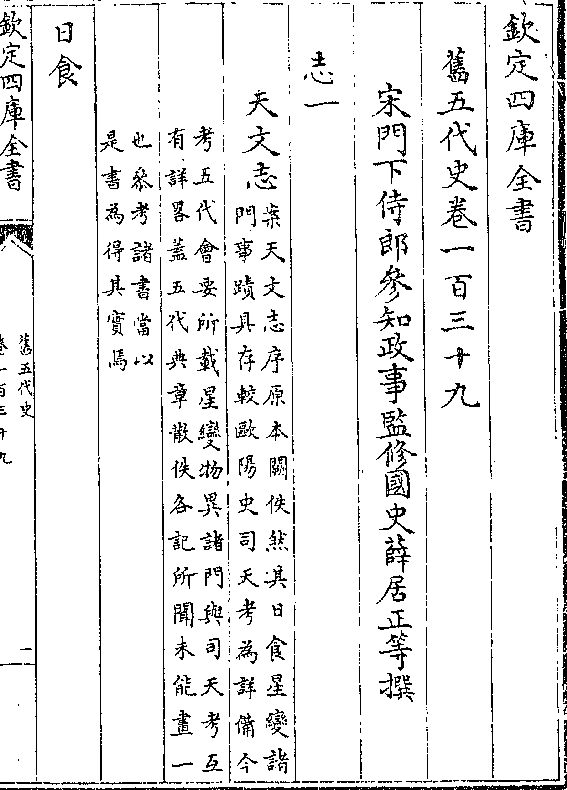 欽定四庫全書
舊五代史卷一百三十九
宋門下侍郎參知政事監修國史薛居正等撰
志一
天文志案天文志序原本闕佚然其日食星變諸
門事蹟具存較歐陽史司天考為詳備今
考五代會要所載星變物異諸門與司天考互
有詳畧蓋五代典章散佚各記所聞未能畫一
也參考諸書當以
是書為得其實焉
日食
欽定四庫全書
舊五代史
卷一百三十九
一